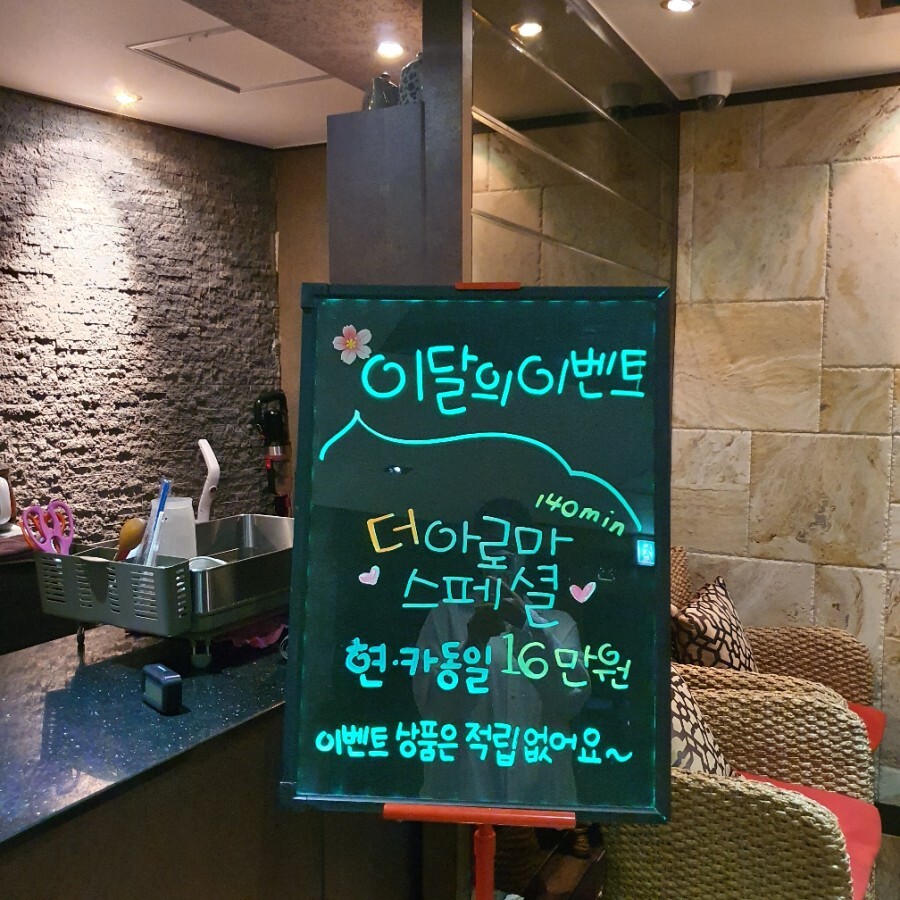 이달의이벤트
140min
더아로마
스페셜
현·카동일 16만원
이벤트 상품은 적립없어요~